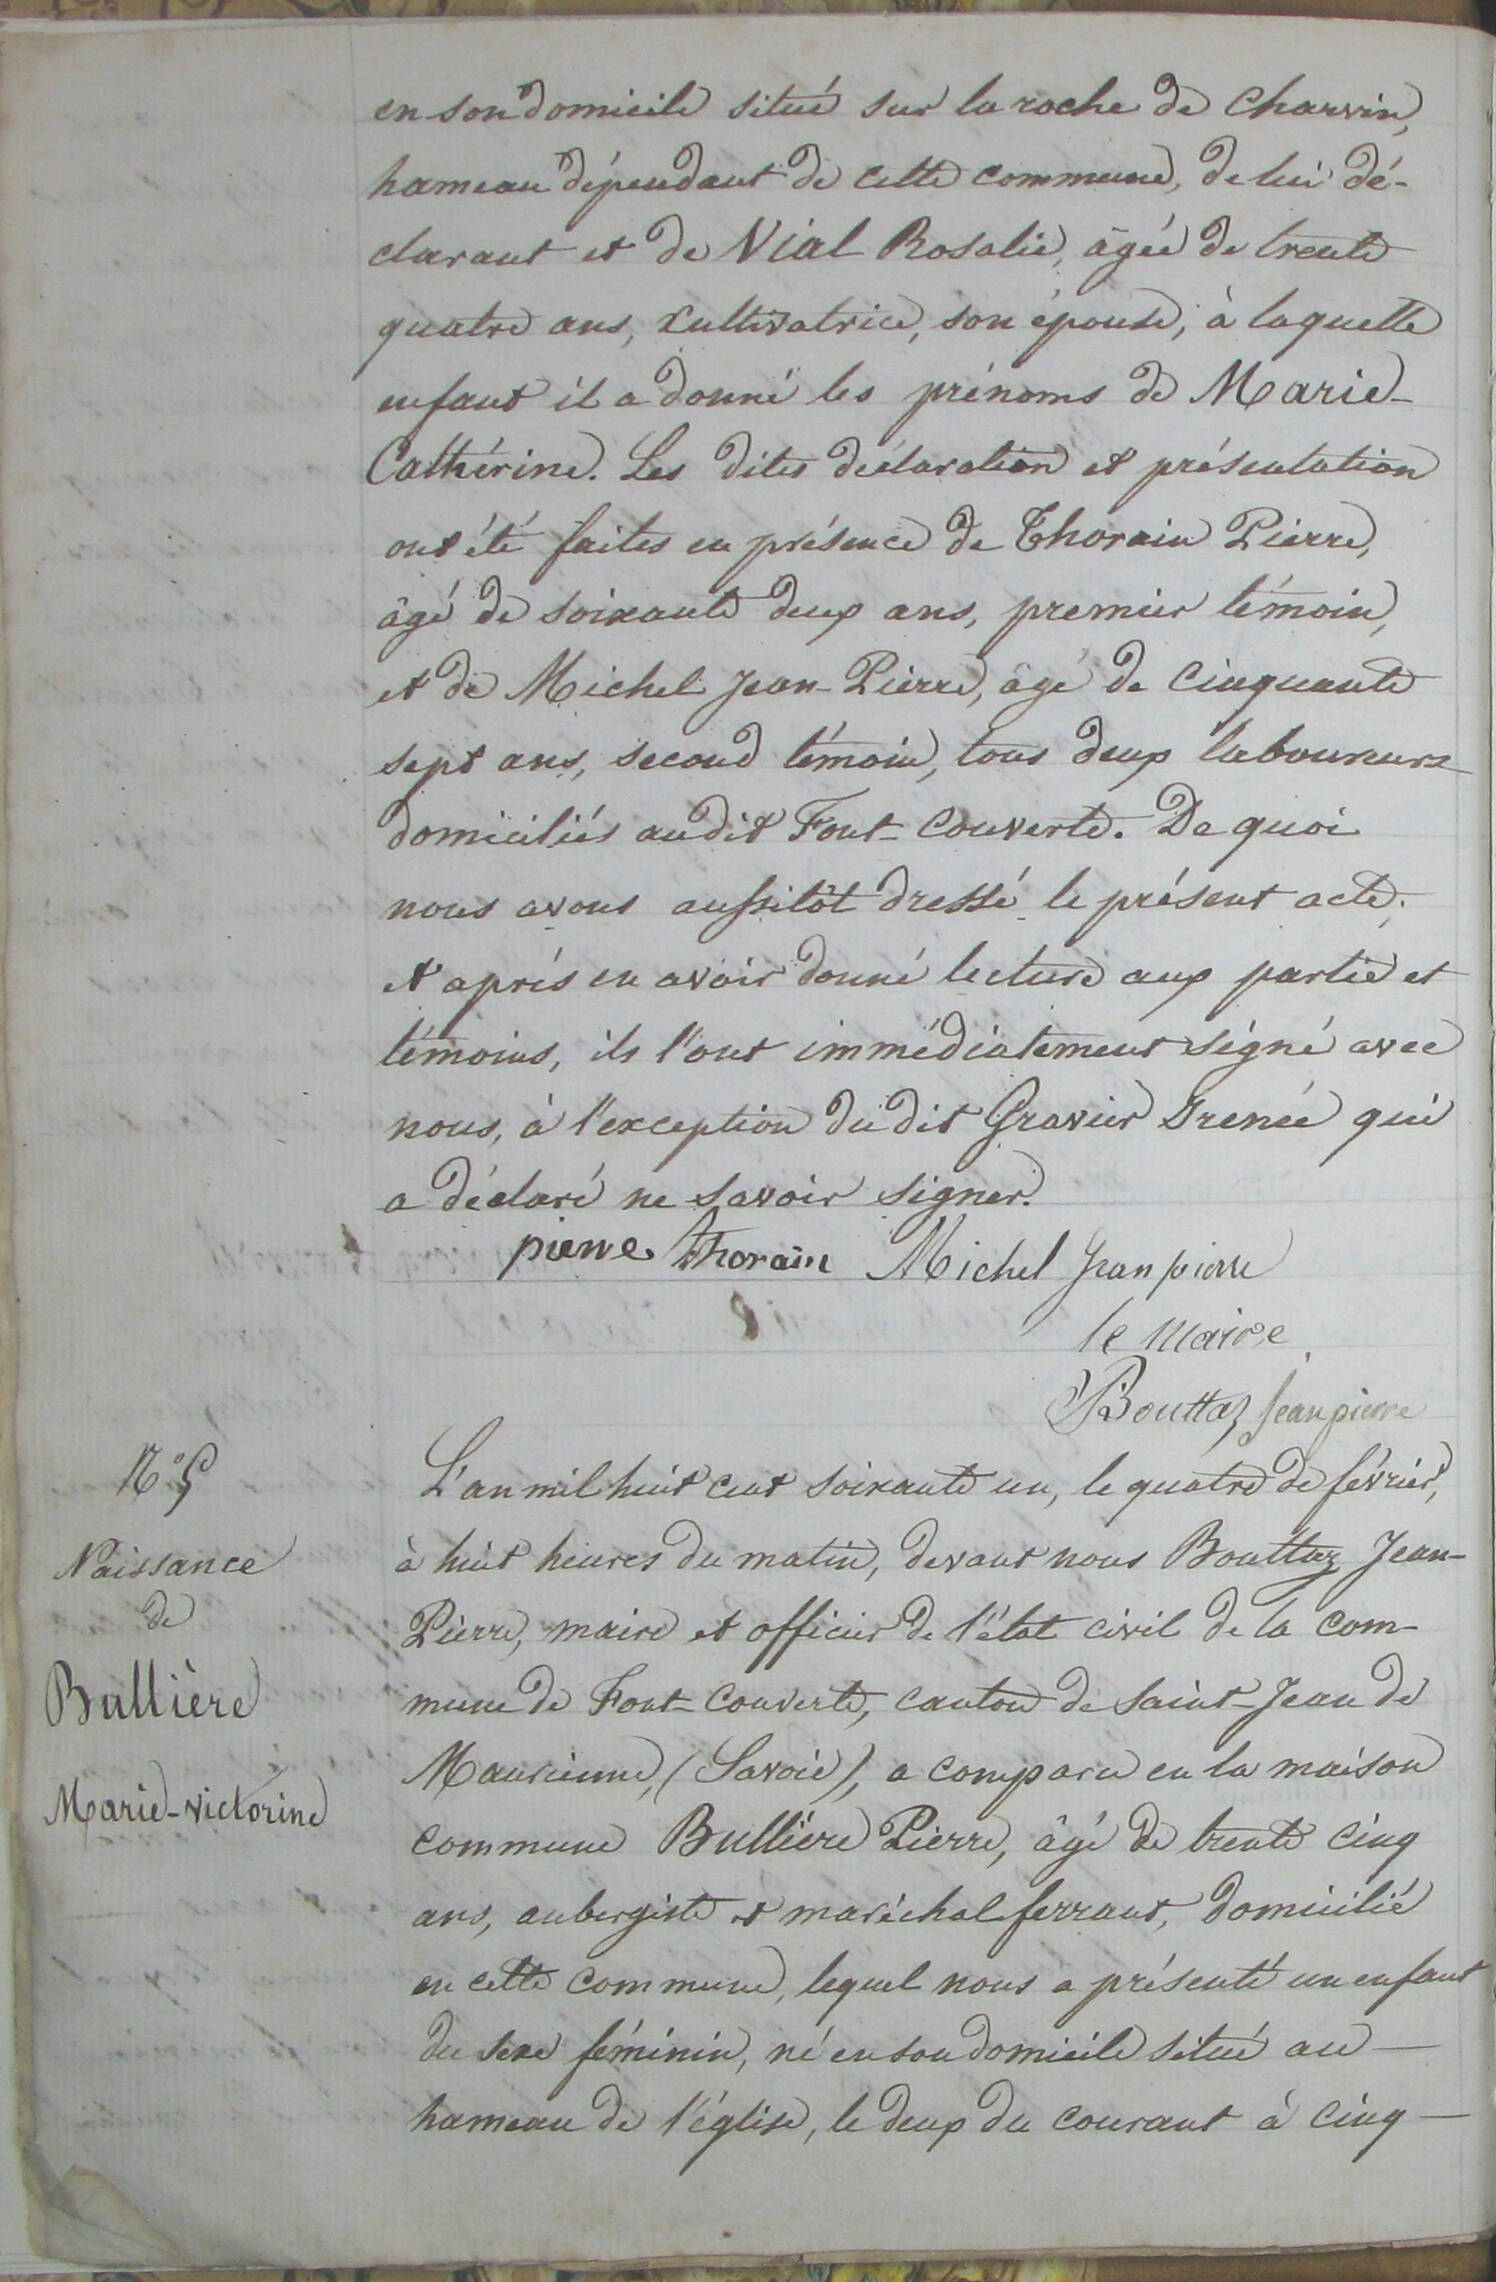 en son domicile situé sur la roche de Charvin,
hameau dépendant de cette commune, de lui dé-
clarant et de Vial Rosalie, âgée de trente
quatre ans, cultivatrice, son épouse, à laquelle
enfant il a donné les prénoms de Marie-
Cathérine. Les dites déclaration et présentation
ont été faites en présence de Thorain Pierre,
âgé de soixante deux ans, premier témoin,
et de Michel Jean-Pierre, âgé de cinquante
sept ans, second témoin, tous deux laboureurs
domiciliés au dit Font-Couverte. De quoi
nous avons aussitôt dressé le présent acte;
et après en avoir donné lecture aux partie et
témoins, ils l'ont immédiatement signé avec
nous, à l'exception du dit Gravier Irenée qui
a déclaré ne savoir signer.
pierre thorain Michel Jean pierre
le Maire
Bouttaz Jean pierre
N°
Naissance
de
Bullière
Marie-Victorine
L'an mil huit cent soixante un, le quatre de février,
à huit heures du matin, devant nous Bouttaz Jean-
Pierre, maire et officier de l'état civil de la com-
mune de Font-Couverte, canton de Saint-Jean de
Maurienne, (Savoie), a comparu en la maison
commune Bullière Pierre, âgé de trente cinq
ans, aubergiste et maréchal ferrant, domicilié
en cette commune, lequel nous a présenté un enfant
du sexe féminin, né en son domicile situé au —
hameau de l'église, le deux du courant à cinq —